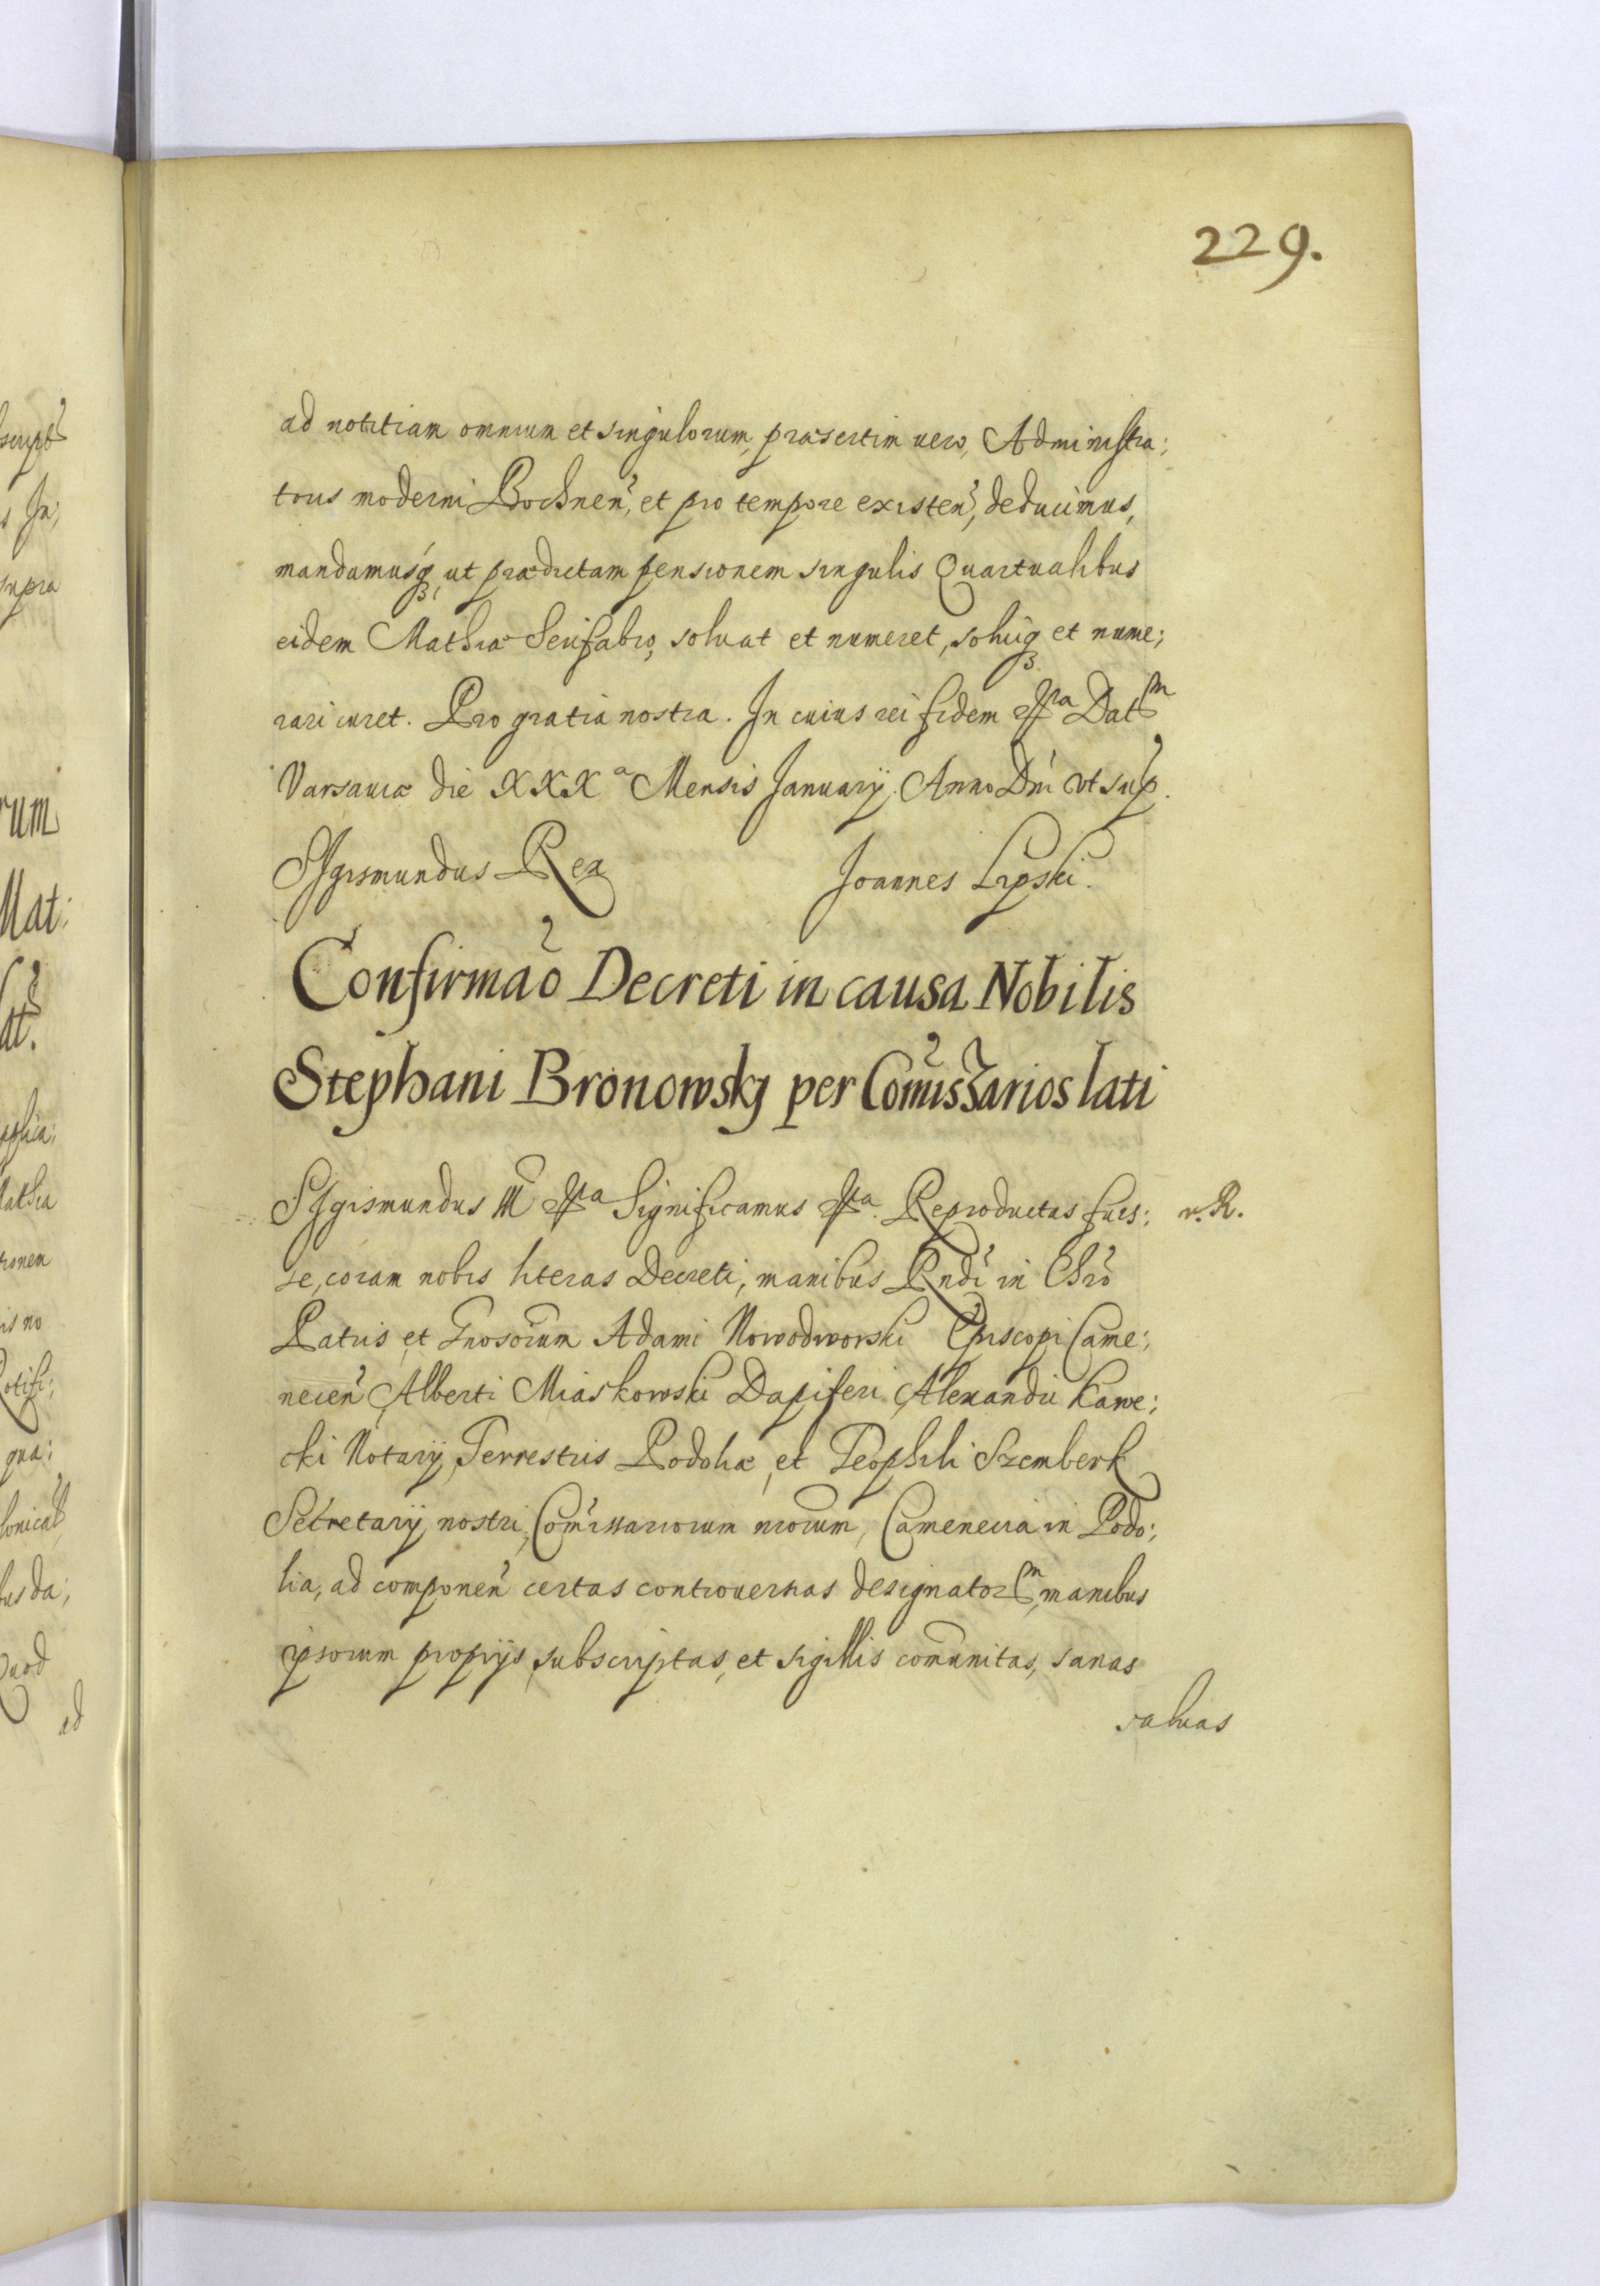 229.
ad notitiam omnium et singulorum, præsertim uero, Administra:
toris moderni Bochnen̄, et pro tempore existen̄, deducimus,
mandamusq́ꝫ, ut prædictam pensionem singulis Quartualibus
eidem Mathiæ Serifabro, soluat et numeret, soluiq́ꝫ et nume:
rari curet. Pro gratia nostra. In cuius rei fidem &ra Datm
Varsauiæ die XXXa Mensis Januarij. Anno Dn̄i vt sup.
Sigismundus Rex Joannes Lipski.
Confirmao̅ Decreti in causa Nobilis
Stephani Bronowskj per Com̄issarios lati
Sigismundus III &ra Significamus &ra. Reproductas fuis:
n. R.
se, coram nobis literas Decreti, manibus Rndi in Chr̄o
Patris et Gnosorum Adami Nowodworski Episcopi Came:
necen̄ Alberti Miaskowski Dapiferi, Alexandri Kawe:
cki Notarij Terrestris Podoliæ, et Teophili Szemberk
Secretarij nostri, Com̄issariorum nrorum, Camenecia in Podo:
lia, ad componen̄ certas controuersias designatorm, manibus
ipsorum proprijs subscriptas, et sigillis com̄unitas, sanas
saluas
scrypt
s In;
supra
rum
Mat:
at.
Mathia
tionem
is no
qua:
bus da;
Quod
ad